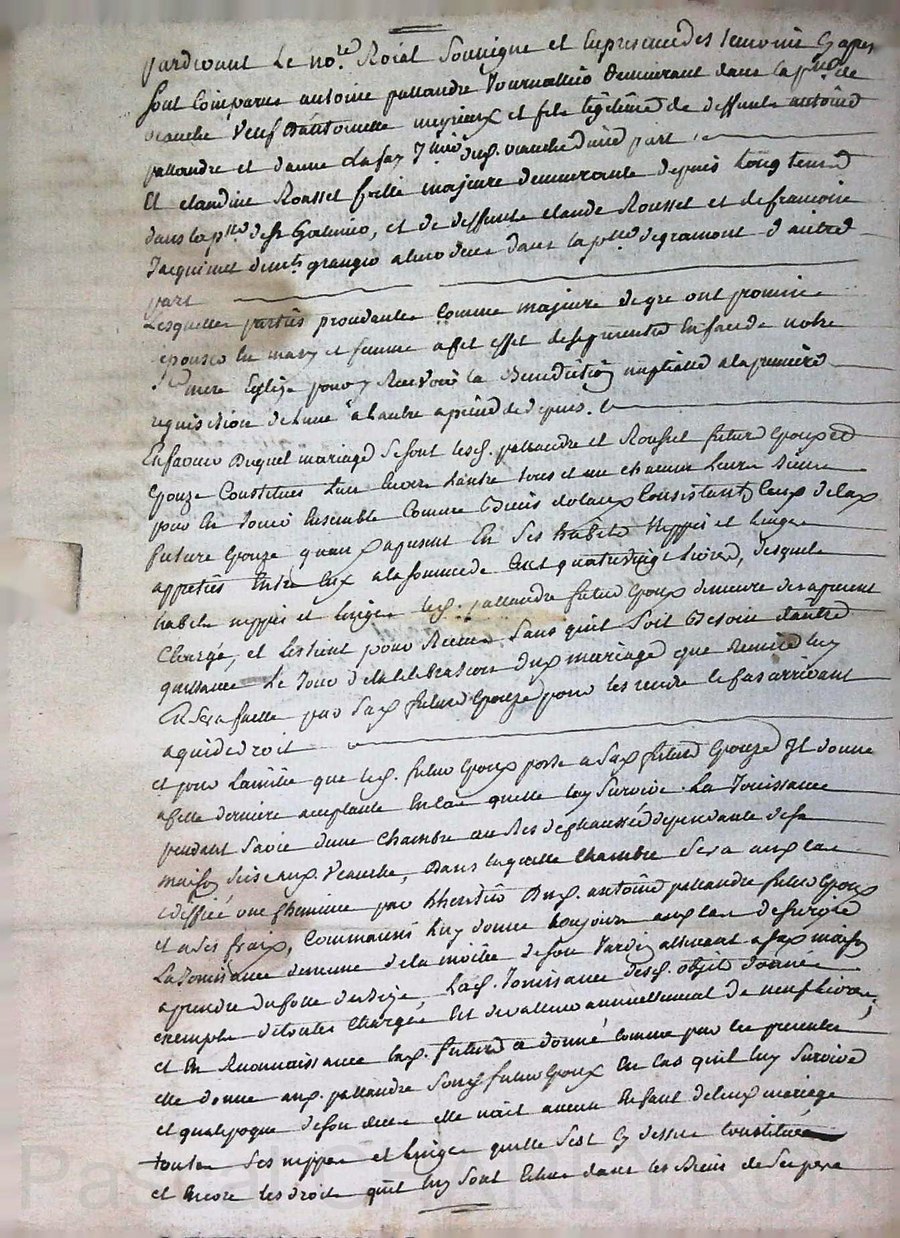 pardevant Le no.re Roial Soussigne et En presence des temoins Cy apres
Sont Comparus antoine pallandre Journallier Demeurant dans la p.sse de
veauche veuf D'antoinette meyrieux et fils légitime de deffunts antoine
pallandre et d'anne Lafay dud. veauche d'une part
Et claudine Rousset fille majeure demeurante depuis Long tems
dans la p.sse de St Galmier, et de deffunts claude Rousset et de francoise
Jacquemet grangers dans la p.sse de gramont d'autre
part
Lesquelles parties procedantes Comme majeures de gre ont promis
s'epouser En mary et femme a cet effet de se presenter En face de notre
S.te mere Eglise pour y Recevoir La Benediction nuptialle a la premiere
requisition de L'une a L'autre a peine de depens.
En faveur Duquel mariage Se sont lesd. pallandre et Rousset futurs Epoux et
Epouze Constitués L'un Envers L'autre tous et un chacun Leurs Biens
pour En Jouir Ensemble Comme Biens dotaux Consistants Ceux de lad.
future Epouze quant a present En Ses habits Nippes et Linges
appretiés Entre Eux a la somme de Cent quatrevingt Livres, desquels
habits nippes et Linges led. pallandre futur Epoux demeure des apresent
Chargé, et Les tient pour Recues Sans qu'il Soit Besoin d'autre
quittance Le Jour de la celebration Dud. mariage que Remise luy
En Sera faitte par Sad. future Epouze pour les rendre le Cas arrivant
a qui de droit
et pour L'amitié que led. futur Epoux porte a Sad. future Epouze Il donne
a cette derniere acceptante En Cas quelle luy Survive La Jouissance
pendant Sa vie d'une Chambre au Rés de chaussée dependante de sa
maison Sise aud. Veauche, Dans laquelle Chambre Sera aud. cas
édiffié une Cheminée par L'heritier Dud. antoine pallandre futur Epoux
et a Ses frais, Comm'aussi Luy donne toujours aud. Cas de Survie
La Jouissance de meme de la moitié de son Jardin attenant a sad. maison
a prendre du Cotté de Bize, Lad. Jouissance desd. objets donnés
exempte de toutes Charges Est de valeur annuellement de neuf Livres,
et En Reconnaissance Lad. future a donné comme par les presentes
elle donne aud. pallandre Sond. futur Epoux En Cas qu'il luy Survive
et qu'a l'epoque de son deces elle n'ait aucun Enfant de leur mariage
toutes Ses nippes et Linges quelle S'est Cy dessus Constituées
et Encore les droits qui luy Sont Echus dans les Biens de Ses pere